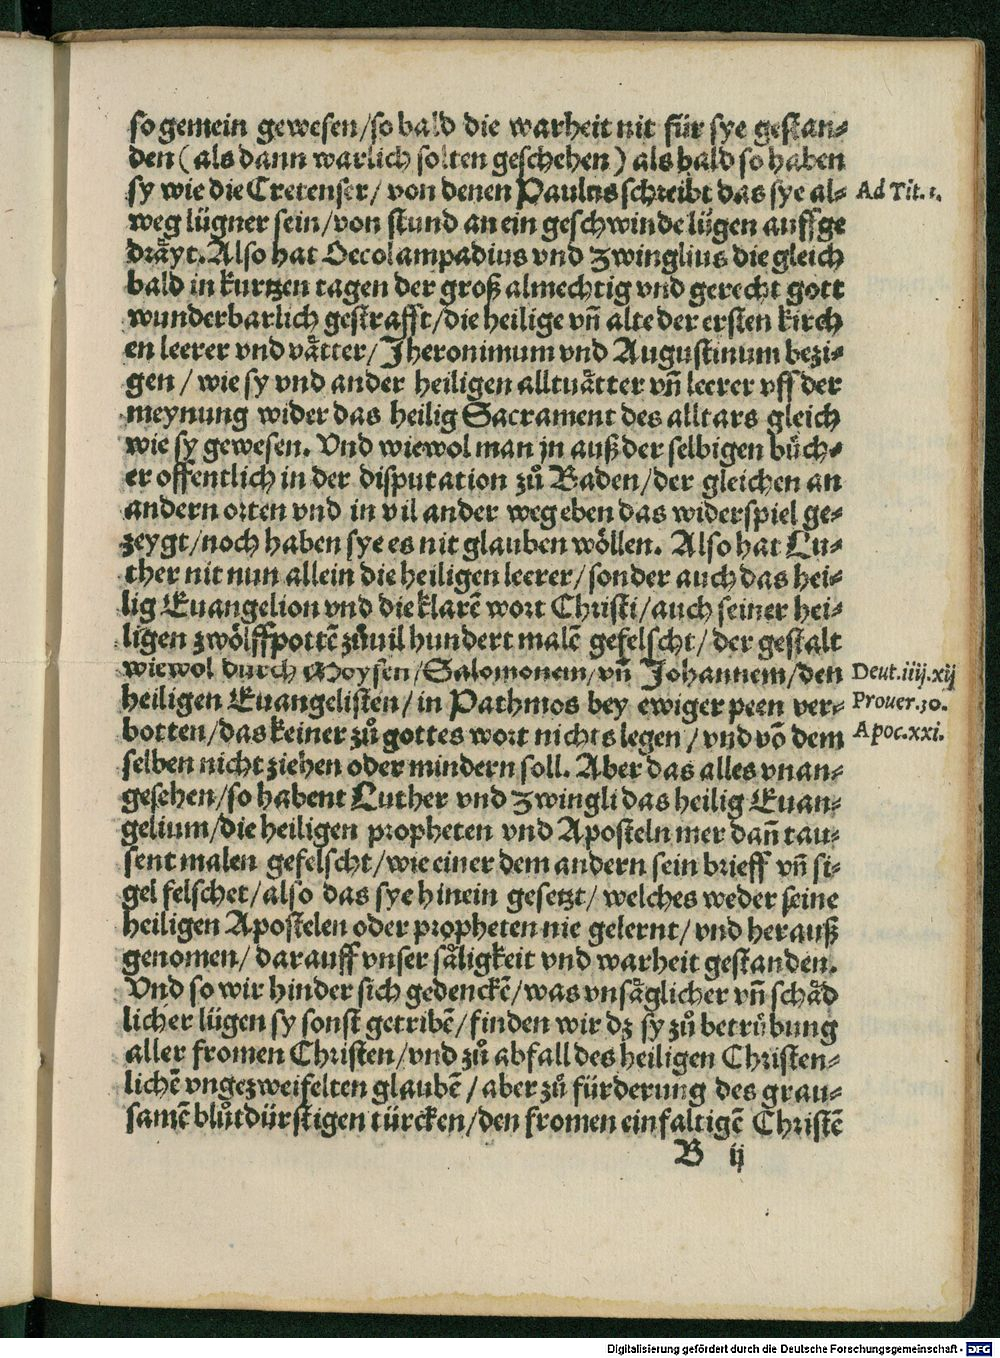 so gemein gewesen/so bald die warheit nit für sye gestan⸗
den (als dann warlich solten geschehen) als bald so haben
sy wie die Cretenser/ von denen Paulus schreibt das sye al⸗ Ad Tit. 1.
weg lügner sein/von stund an ein geschwinde lügen auffge
dräyt. Also hat Oecolampadius vnd Zwinglius die gleich
bald in kurtzen tagen der groß almechtig vnd gerecht gott
wunderbarlich gestrafft/die heilige vñ alte der ersten kirch
en leerer vnd vätter/Jheronimum vnd Augustinum bezi⸗
gen / wie sy vnd ander heiligen alltuätter vñ leerer vff der
meynung wider das heilig Sacrament des alltars gleich
wie sy gewesen. Vnd wiewol man jn auß der selbigen büch⸗
er offentlich in der disputation zů Baden/der gleichen an
andern orten vnd in vil ander weg eben das widerspiel ge⸗
zeygt/noch haben sye es nit glauben wöllen. Also hat Lu⸗
ther nit nun allein die heiligen leerer/sonder auch das hei⸗
lig Euangelion vnd die klarē wort Christi/auch seiner hei⸗
ligen zwölffpottē zůuil hundert malē gefelscht/ der gestalt
wiewol durch Moysen/Salomonem/vñ Johannem/den Deut.iiij.xij
heiligen Euangelisten/in Pathmos bey ewiger peen ver⸗ Prouer.30.
botten/das keiner zů gottes wort nichts legen / vnd vō dem Apoc.xxi.
selben nicht ziehen oder mindern soll. Aber das alles vnan⸗
gesehen/so habent Luther vnd Zwingli das heilig Euan⸗
gelium/die heiligen propheten vnd Aposteln mer dañ tau⸗
sent malen gefelscht/wie einer dem andern sein brieff vñ si⸗
gel felschet/also das sye hinein gesetzt/ welches weder seine
heiligen Apostelen oder propheten nie gelernt/ vnd herauß
genomen/ darauff vnser säligkeit vnd warheit gestanden.
Vnd so wir hinder sich gedenckē/was vnsäglicher vñ schäd
licher lügen sy sonst getribē/finden wir dz sy zů betrübung
aller fromen Christen/vnd zů abfall des heiligen Christen⸗
lichē vngezweifelten glaubē / aber zů fürderung des grau⸗
samē blůtdürstigen türcken/den fromen einfaltigē Christē
B ij
Digitalisierung gefördert durch die Deutsche Forschungsgemeinschaft - DFG